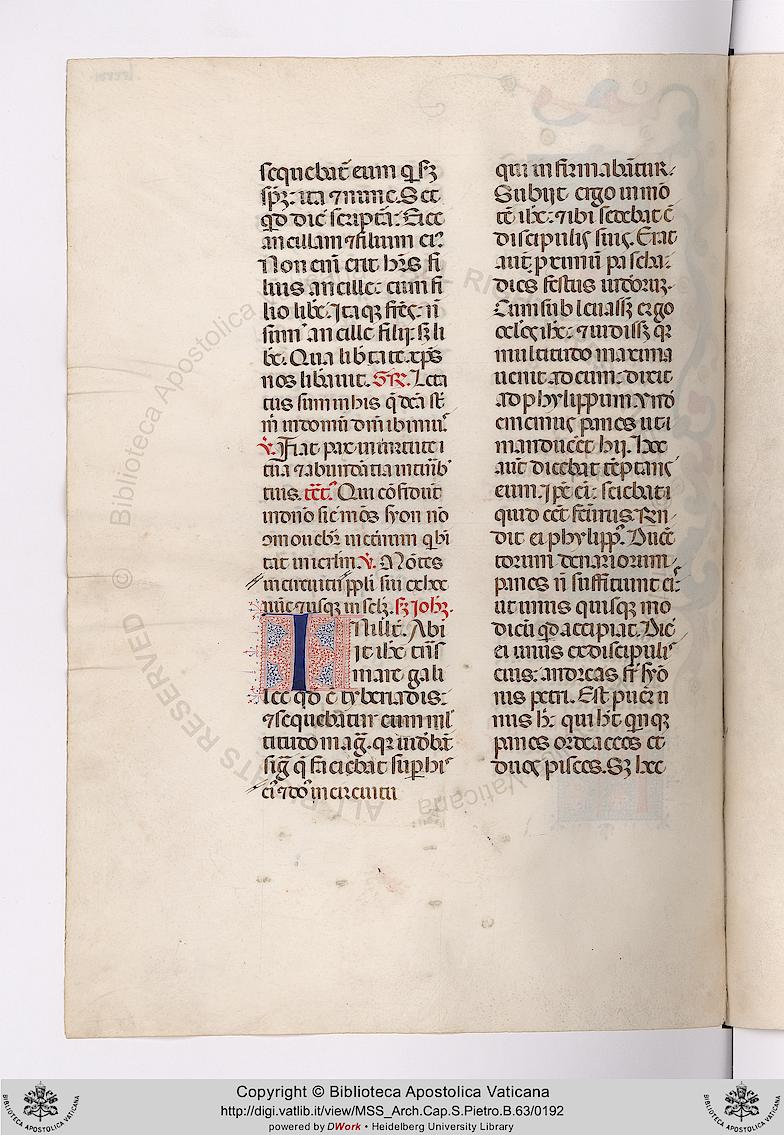 sequebat̄ eum q̇ sꝫ
sp̄ꝫ: ita ⁊ nunc. Sꝫ
qd̄ dic̄ scriptā: Eice
ancillam ⁊ filium ei᷒:
Non eni᷒ erit hr̄s fi
lius ancille: cum fi
lio libe᷒. Itaqꝫ fr̄es: n̄
sum᷒ ancille filij: sꝫ li
be᷒. Qua lib̄tate xp̄s
nos libauit. Gr̄. Leta
tus sum in his q̄ dc̄a st̄
m̄ in domū dn̄i ibimus᷒
℣. Fiat pax in uirtute
tua ⁊ abundantia in turrib᷒
tuis. tc̄t᷒. Qui cōfidunt
in dn̄o sic̄ mōs syon nō
ꝯmouebr̄ in et̄num q̇ hi
tat in ierl̄m. ℣. Mōtes
in circuitu ppl̄i sui ex hoc
nūc ⁊ usqꝫ in sc̄lꝫ. sꝫ Joh̄ꝫ.
IN ill̄t̄. Abi
it ih̄c tn̄s
mare gali
lee qd̄ ē tyberiadis:
⁊ sequebāt̄ur eum ml̄
titudo mag᷒. qꝛ uidēbāt
sig᷒ q̄ faciebat sup his
in circuitu
qui infirmabāt̄ur.
Subijt ergo in mō
tē ih̄c: ⁊ ibi sedebat cū
discipulis suis. Erat
aut᷒ proximū pascha:
dies festus iudeorꝫ.
Cum subleuassꝫ ergo
ocl̄os ih̄c: ⁊ uidissꝫ qꝛ
multitudo maxima
uenit ad eum: dixit
ad phylippum. Vnd̄
ememus panes ut
manducēt hij. Hoc
aut᷒ dicebat tēptans
eum. Ipē ei᷒: sciebat
quid eēt fcūrus. Rn̄
dit ei phylipp᷒. Ducē
torum denariorum
panes n̄ sufficiunt ei᷒:
ut unus quisqꝫ mo
dicū qd̄ accipiat. Dic̄
ei unus ex discipulis
eius: andreas fr̄ syō
nis petri. Est puer u
nus hic᷒ qui ht̄ quīqꝫ
panes ordeaceos et
duos pisces. Sꝫ hec
Copyright © Biblioteca Apostolica Vaticana
http://digi.vatlib.it/view/MSS_Arch.Cap.S.Pietro.B.63/0192
powered by DWork • Heidelberg University Library